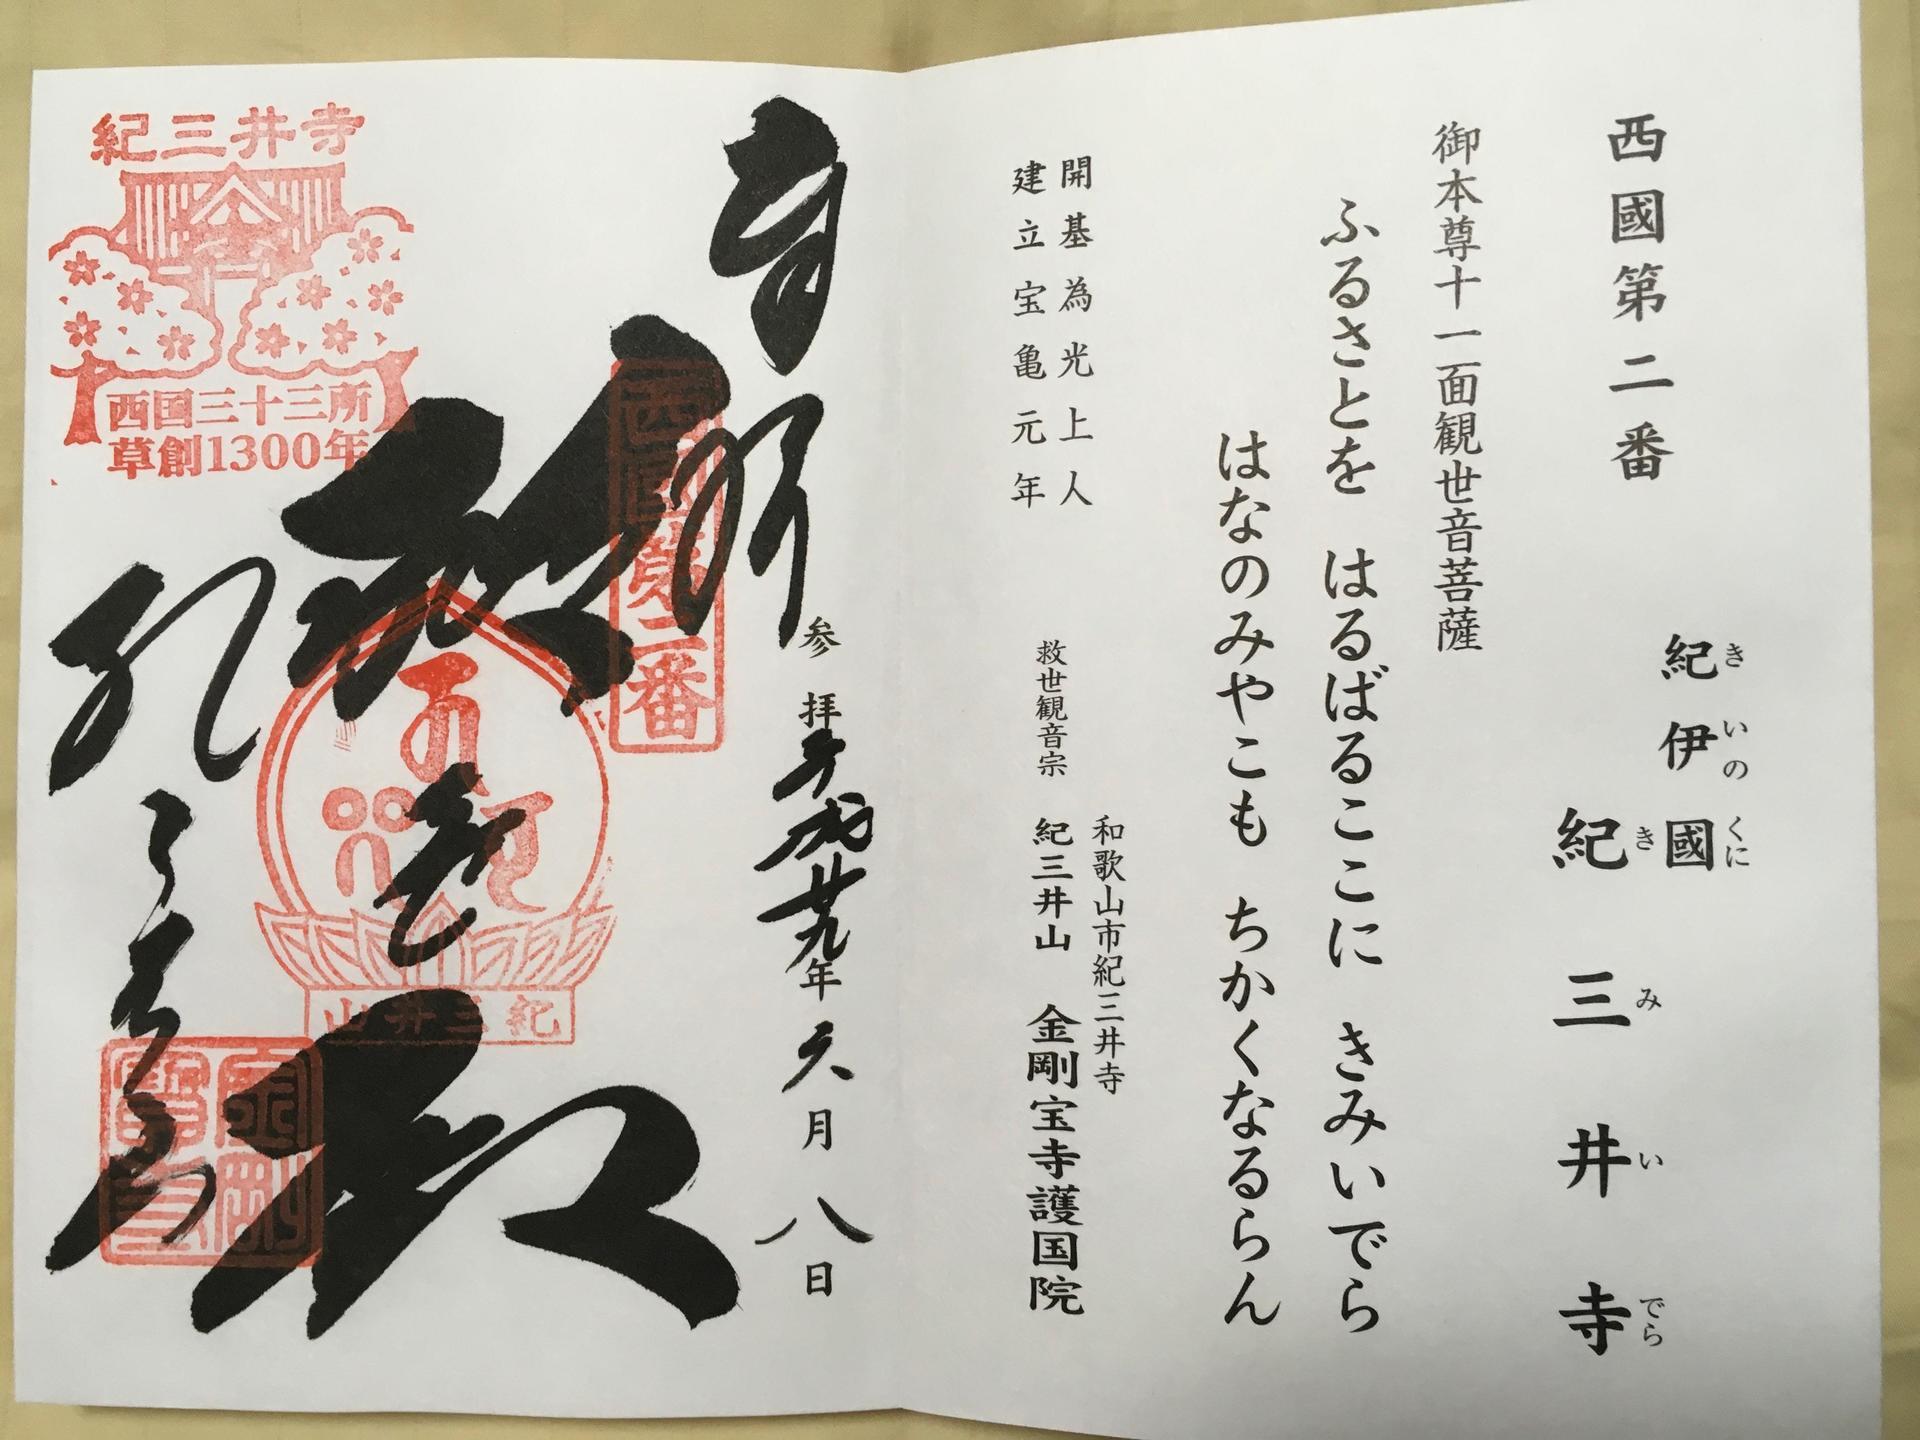 西國第二番
紀伊國
きいのくに
紀三井寺
きみいでら
御本尊十一面観世音菩薩
ふるさとを はるばるここに きみいでら
はなのみやこも ちかくなるらん
開基為光上人
建立宝亀元年
和歌山市紀三井寺
救世観音宗 紀三井山 金剛宝寺護国院
奉拝
参拝平成廿九年六月八日
西国第二番
救世殿
紀三井山
紀三井寺
紀三井寺
西国三十三所
草創1300年
金剛寶寺